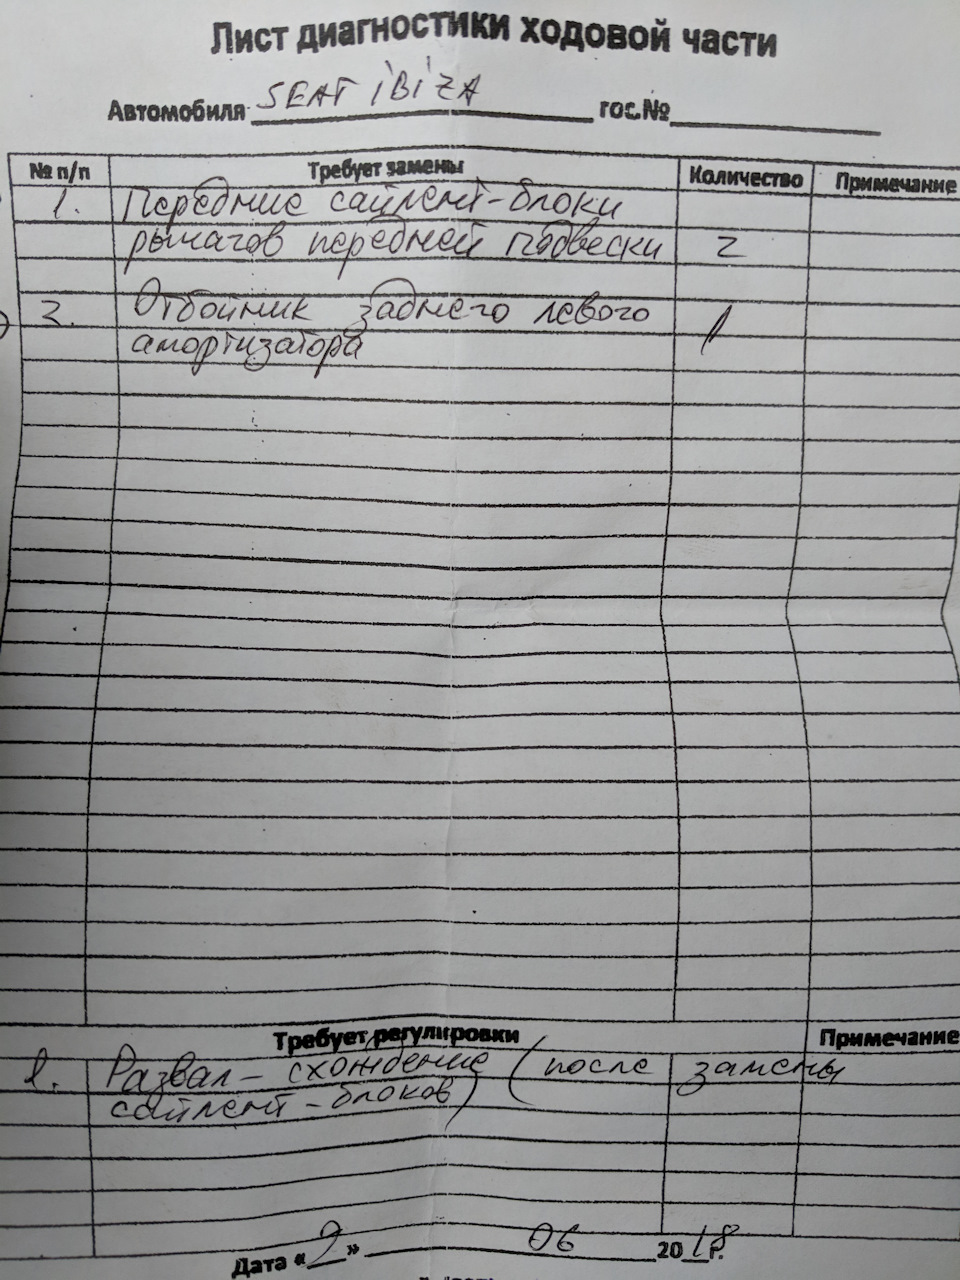 Лист диагностики ходовой части
Автомобиля SEAT iBiZA гос.№
№ п/п Требует замены Количество Примечание
1. Передние сайлент-блоки
рычагов передней подвески 2
2. Отбойник заднего левого 1
амортизатора
Требует регулировки Примечание
1. Развал-схождение (после замены
сайлент-блоков)
Дата «9» 06 2018г.